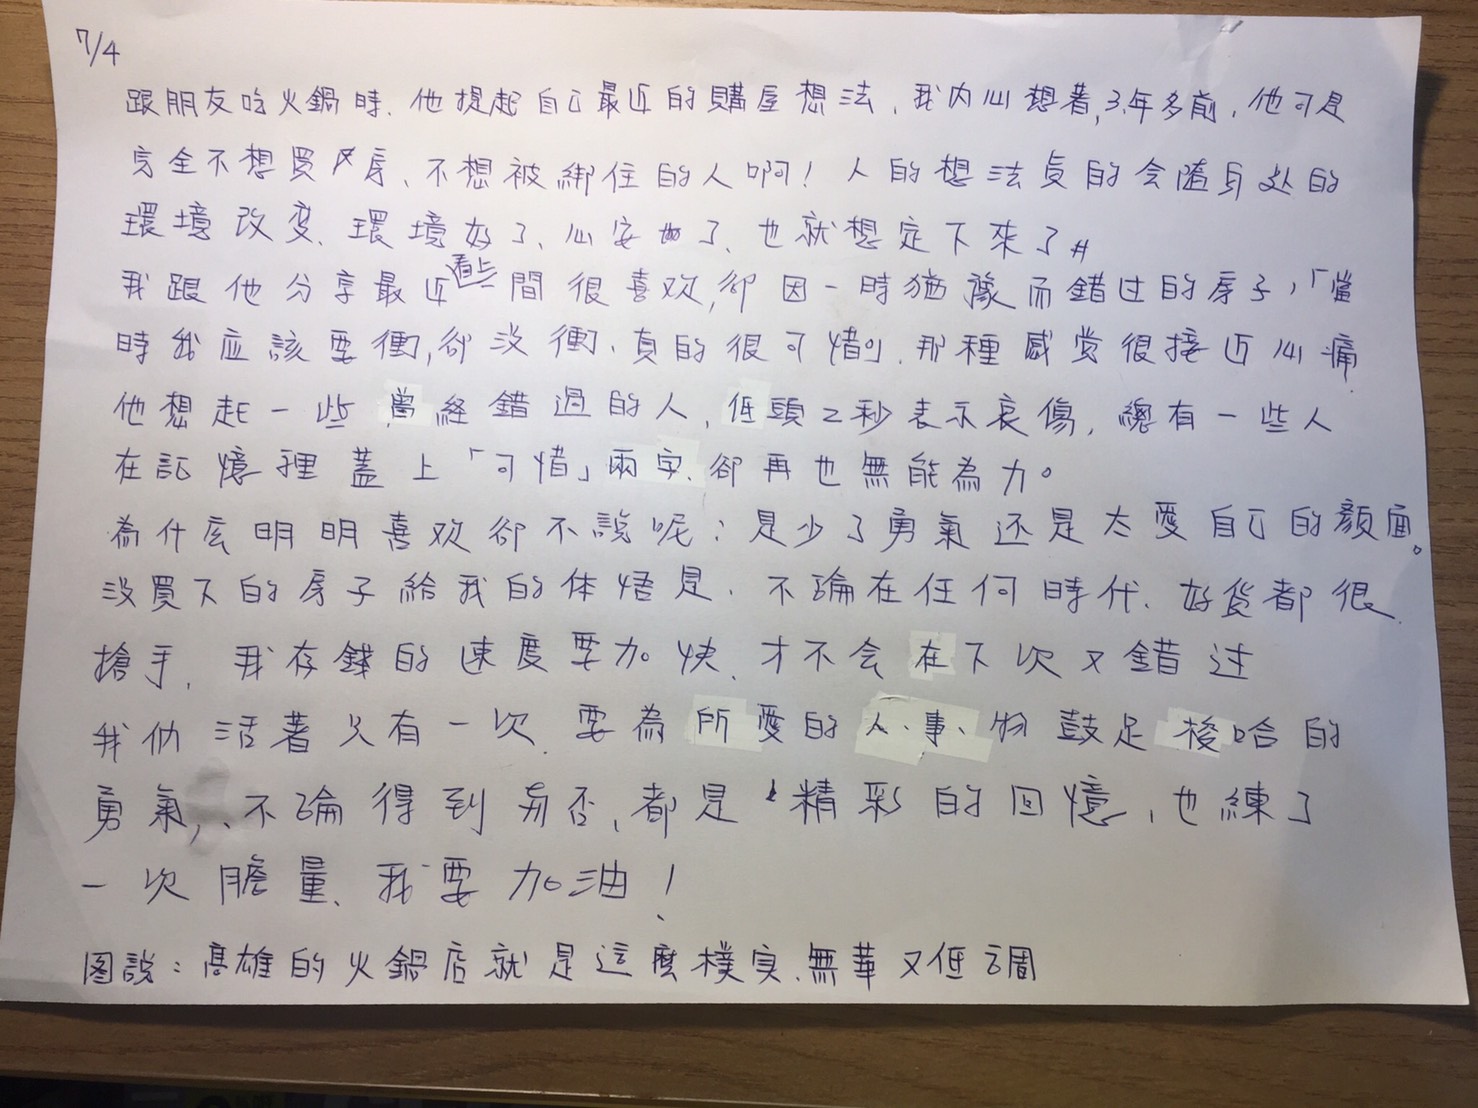 7/4
跟朋友吃火鍋時、他提起自己最近的購屋想法、我內心想著,3年多前,他可是
完全不想買房、不想被綁住的人啊!人的想法真的会隨身处的
環境改变、環境好了、心安了、也就想定下來了#
我跟他分享最近看上一間很喜欢,卻因一時猶豫而錯过的房子,「當
時我应該要衝,卻沒衝、真的很可惜」、那種感觉很接近心痛
他想起一些曾经錯過的人,低頭2秒表示哀傷,總有一些人
在記憶裡蓋上「可惜」兩字、卻再也無能為力。
為什么明明喜欢卻不說呢:是少了勇氣还是太愛自己的顏面。
沒買下的房子給我的体悟是、不論在任何時代、好货都很
搶手、我存錢的速度要加快、才不会在下次又錯过
我們活著只有一次、要為所愛的人、事、物鼓足梭哈的
勇氣,不論得到與否,都是精彩的回憶,也練了
一次膽量、我要加油!
图說:高雄的火鍋店就是這麼樸实、無華又低調